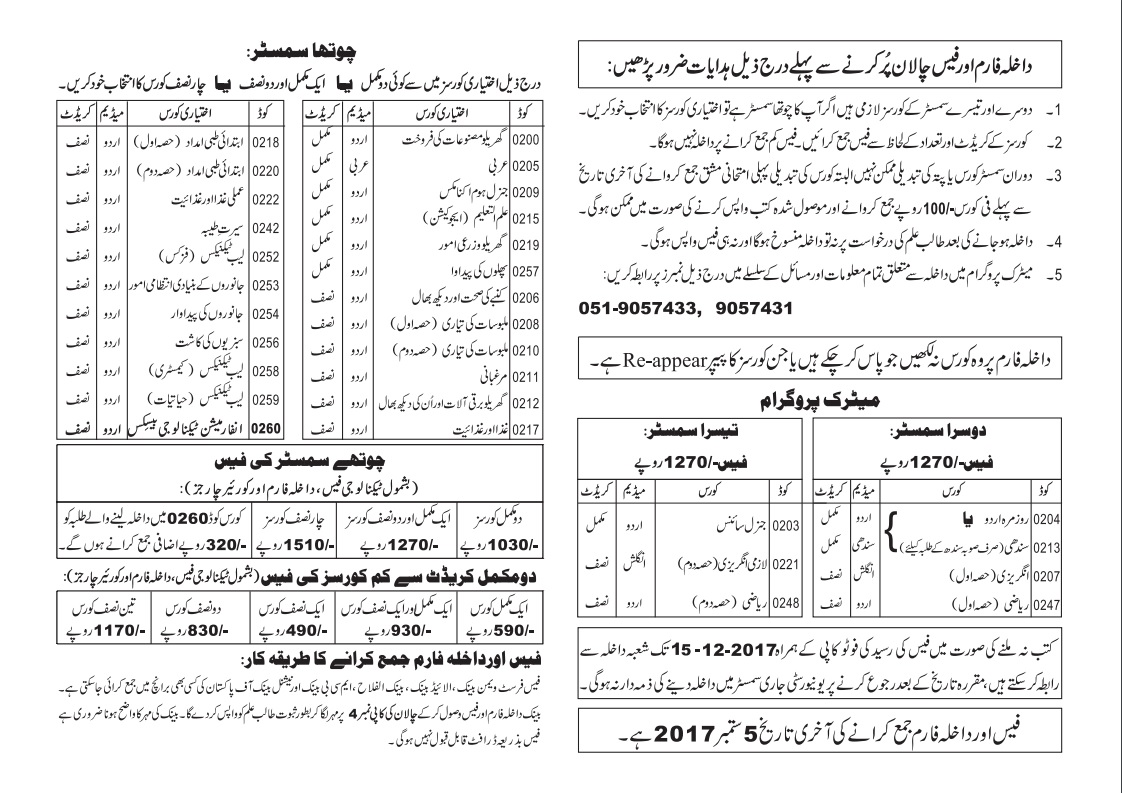 داخلہ فارم اور فیس چالان پُر کرنے سے پہلے درج ذیل ہدایات ضرور پڑھیں:
1۔ دوسرے اور تیسرے سمسٹر کے کورسز لازمی ہیں اگر آپ کا چوتھا سمسٹر ہے تو اختیاری کورسز کا انتخاب خود کریں۔
2۔ کورسز کے کریڈٹ اور تعداد کے لحاظ سے فیس جمع کرائیں۔ فیس کم جمع کرانے پر داخلہ نہیں ہوگا۔
3۔ دوران سمسٹر کورس یا پتہ کی تبدیلی ممکن نہیں البتہ کورس کی تبدیلی پہلی امتحانی مشق جمع کروانے کی آخری تاریخ
سے پہلے فی کورس -/100 روپے جمع کروانے اور موصول شدہ کتب واپس کرنے کی صورت میں ممکن ہوگی۔
4۔ داخلہ ہو جانے کی بعد طالب علم کی درخواست پر نہ تو داخلہ منسوخ ہوگا اور نہ ہی فیس واپس ہوگی۔
5۔ میٹرک پروگرام میں داخلہ سے متعلق تمام معلومات اور مسائل کے سلسلے میں درج ذیل نمبرز پر رابطہ کریں:
051-9057433, 9057431
داخلہ فارم پر وہ کورس نہ لکھیں جو پاس کر چکے ہیں یا جن کورسز کا پیپر Re-appear ہے۔
میٹرک پروگرام
دوسرا سمسٹر:
فیس -/1270 روپے
کوڈ کورس میڈیم کریڈٹ
0204 روزمرہ اردو یا اردو مکمل
0213 سندھی (صرف صوبہ سندھ کے طلبہ کیلئے) سندھی مکمل
0207 انگریزی (حصہ اول) انگلش نصف
0247 ریاضی (حصہ اول) اردو نصف
تیسرا سمسٹر:
فیس -/1270 روپے
کوڈ کورس میڈیم کریڈٹ
0203 جنرل سائنس اردو مکمل
0221 لازمی انگریزی (حصہ دوم) انگلش نصف
0248 ریاضی (حصہ دوم) اردو نصف
کتب نہ ملنے کی صورت میں فیس کی رسید کی فوٹو کاپی کے ہمراہ 15-12-2017 تک شعبہ داخلہ سے
رابطہ کر سکتے ہیں، مقررہ تاریخ کے بعد رجوع کرنے پر یونیورسٹی جاری سمسٹر میں داخلہ دینے کی ذمہ دار نہ ہوگی۔
فیس اور داخلہ فارم جمع کرانے کی آخری تاریخ 5 ستمبر 2017 ہے۔
چوتھا سمسٹر:
درج ذیل اختیاری کورسز میں سے کوئی دو مکمل یا ایک مکمل اور دو نصف یا چار نصف کورس کا انتخاب خود کریں۔
کوڈ اختیاری کورس میڈیم کریڈٹ
0200 گھریلو مصنوعات کی فروخت اردو مکمل
0205 عربی عربی مکمل
0209 جنرل ہوم اکنامکس اردو مکمل
0215 علم التعلیم (ایجوکیشن) اردو مکمل
0219 گھریلو و زرعی امور اردو مکمل
0257 پھلوں کی پیداوا اردو مکمل
0206 کنبے کی صحت اور دیکھ بھال اردو نصف
0208 ملبوسات کی تیاری (حصہ اول) اردو نصف
0210 ملبوسات کی تیاری (حصہ دوم) اردو نصف
0211 مرغبانی اردو نصف
0212 گھریلو برقی آلات اور اُن کی دیکھ بھال اردو نصف
0217 غذا اور غذائیت اردو نصف
کوڈ اختیاری کورس میڈیم کریڈٹ
0218 ابتدائی طبی امداد (حصہ اول) اردو نصف
0220 ابتدائی طبی امداد (حصہ دوم) اردو نصف
0222 عملی غذا اور غذائیت اردو نصف
0242 سیرت طیبہ اردو نصف
0252 لیب ٹیکنیکس (فزکس) اردو نصف
0253 جانوروں کے بنیادی انتظامی امور اردو نصف
0254 جانوروں کی پیداوار اردو نصف
0256 سبزیوں کی کاشت اردو نصف
0258 لیب ٹیکنیکس (کیمسٹری) اردو نصف
0259 لیب ٹیکنیکس (حیاتیات) اردو نصف
0260 انفارمیشن ٹیکنالوجی بیسکس اردو نصف
چوتھے سمسٹر کی فیس
(بشمول ٹیکنالوجی فیس، داخلہ فارم اور کورئیر چارجز):
دو مکمل کورسز ایک مکمل اور دو نصف کورسز چار نصف کورسز کورس کوڈ 0260 میں داخلہ لینے والے طلبہ کو
-/1030 روپے -/1270 روپے -/1510 روپے -/320 روپے اضافی جمع کرانے ہوں گے۔
دو مکمل کریڈٹ سے کم کورسز کی فیس (بشمول ٹیکنالوجی فیس، داخلہ فارم اور کورئیر چارجز):
ایک مکمل کورس ایک مکمل اور ایک نصف کورس ایک نصف کورس دو نصف کورس تین نصف کورس
-/590 روپے -/930 روپے -/490 روپے -/830 روپے -/1170 روپے
فیس اور داخلہ فارم جمع کرانے کا طریقہ کار:
فیس فرسٹ ویمن بینک، الائیڈ بینک، بینک الفلاح، ایم سی بی بینک اور نیشنل بینک آف پاکستان کی کسی بھی برانچ میں جمع کرائی جا سکتی ہے۔
بینک داخلہ فارم اور فیس وصول کر کے چالان کی کاپی نمبر 4 پر مہر لگا کر بطور ثبوت طالب علم کو واپس کر دے گا۔ بینک کی مہر کا واضح ہونا ضروری ہے
فیس بذریعہ ڈرافٹ قابل قبول نہیں ہوگی۔